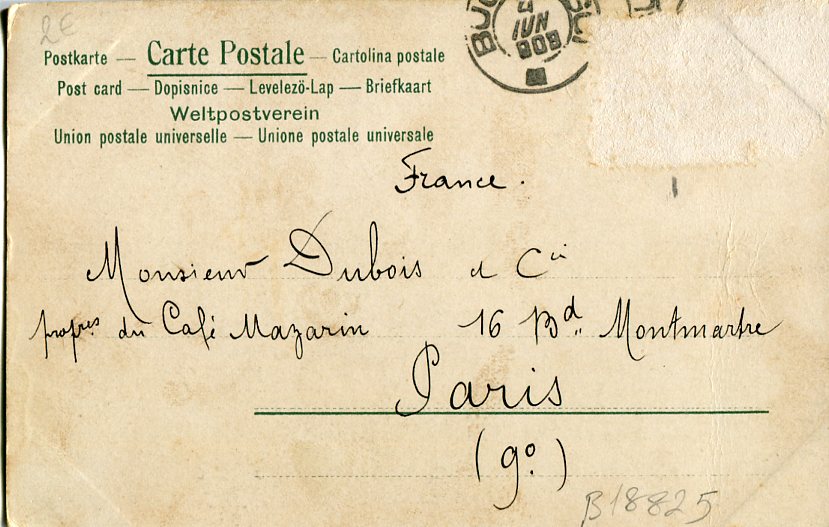 2E
Postkarte — Carte Postale — Cartolina postale
Post card — Dopisnice — Levelezö-Lap — Briefkaart
Weltpostverein
Union postale universelle — Unione postale universale
4
IUN
908
France.
Monsieur Dubois et Cie
propres du Café Mazarin 16 Bd. Montmartre
Paris
(9o)
B18825